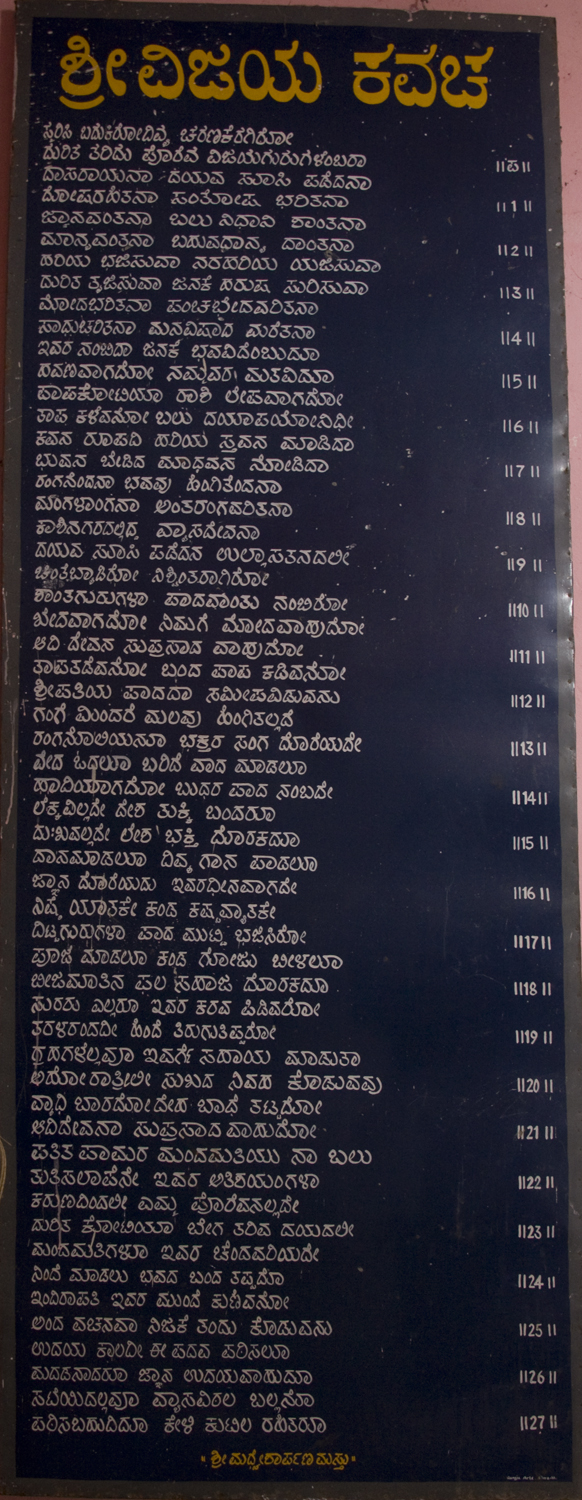 ಶ್ರೀ ವಿಜಯ ಕವಚ
ಸ್ಮರಿಸಿ ಬದುಕಿರೋ ದಿವ್ಯ ಚರಣಕೆರಗಿರೋ
ದುರಿತ ತರಿದು ಪೊರೆವ ವಿಜಯಗುರುಗಳೆಂಬರಾ ||ಪ||
ದಾಸರಾಯನಾ ದಯವ ಸೂಸಿ ಪಡೆದನಾ
ದೋಷರಹಿತನಾ ಸಂತೋಷ ಭರಿತನಾ ||1||
ಜ್ಞಾನವಂತನಾ ಬಲು ನಿಧಾನಿ ಶಾಂತನಾ
ಮಾನ್ಯವಂತನಾ ಬಹುವಧಾನ್ಯ ದಾಂತನಾ ||2||
ಹರಿಯ ಭಜಿಸುವಾ ನರಹರಿಯ ಯಜಿಸುವಾ
ದುರಿತ ತ್ಯಜಿಸುವಾ ಜನಕೆ ಹರುಷ ಸುರಿಸುವಾ ||3||
ಮೋದಭರಿತನಾ ಪಂಚಭೇದವರಿತನಾ
ಸಾಧುಚರಿತನಾ ಮನವಿಷಾದ ಮರೆತನಾ ||4||
ಇವರ ನಂಬಿದಾ ಜನಕೆ ಭವವಿದೆಂಬುದೂ
ಹವಣವಾಗದೋ ನಮ್ಮವರ ಮತವಿದೂ ||5||
ಪಾಪಕೋಟಿಯಾ ರಾಶಿ ಲೇಪವಾಗದೋ
ತಾಪ ಕಳೆವನೋ ಬಲು ದಯಾಪಯೋನಿಧೀ ||6||
ಕವನ ರೂಪದಿ ಹರಿಯ ಸ್ತವನ ಮಾಡಿದಾ
ಭುವನ ಬೇಡಿದ ಮಾಧವನ ನೋಡಿದಾ ||7||
ರಂಗನೆಂದನಾ ಭವವು ಹಿಂಗಿತೆಂದನಾ
ಮಂಗಳಾಂಗನಾ ಅಂತರಂಗವರಿತನಾ ||8||
ಕಾಶಿನಗರದಲ್ಲಿದ್ದ ವ್ಯಾಸದೇವನಾ
ದಯವ ಸೂಸಿ ಪಡೆದನ ಉಲ್ಲಾಸತನದಲೀ ||9||
ಚಿಂತೆಬ್ಯಾಡಿರೋ ನಿಶ್ಚಿಂತರಾಗಿರೋ
ಶಾಂತಗುರುಗಳಾ ಪಾದವಾಂತು ನಂಬಿರೋ ||10||
ಖೇದವಾಗದೋ ನಿಮಗೆ ಮೋದವಾಹುದೋ
ಆದಿ ದೇವನ ಸುಪ್ರಸಾದ ವಾಹುದೋ ||11||
ತಾಪತಡೆವನೋ ಬಂದ ಪಾಪ ಕಡಿವನೋ
ಶ್ರೀಪತಿಯ ಪಾದದಾ ಸಮೀಪವಿಡುವನು ||12||
ಗಂಗೆ ಮಿಂದರೆ ಮಲವು ಹಿಂಗಿತಲ್ಲದೆ
ರಂಗನೊಲಿಯನೂ ಭಕ್ತರ ಸಂಗ ದೊರೆಯದೇ ||13||
ವೇದ ಓದಲೂ ಬರಿದೆ ವಾದ ಮಾಡಲೂ
ಹಾದಿಯಾಗದೋ ಬುಧರ ಪಾದ ನಂಬದೇ ||14||
ಲೆಕ್ಕವಿಲ್ಲದೇ ದೇಶ ತುಕ್ಕಿ ಬಂದರೂ
ದುಃಖವಲ್ಲದೇ ಲೇಶ ಭಕ್ತಿ ದೊರಕದೂ ||15||
ದಾನಮಾಡಲೂ ದಿವ್ಯ ಗಾನ ಪಾಡಲೂ
ಜ್ಞಾನ ದೊರೆಯದು ಇವರಧೀನವಾಗದೇ ||16||
ನಿಷ್ಠೆ ಯಾತಕೇ ಕಂಡ ಕಷ್ಟವ್ಯಾತಕೇ
ದಿಟ್ಟಗುರುಗಳಾ ಪಾದ ಮುಟ್ಟಿ ಭಜಿಸಿರೋ ||17||
ಪೂಜೆ ಮಾಡಲೂ ಕಂಡ ಗೋಜು ಬೀಳಲೂ
ಬೀಜಮಾತಿನ ಫಲ ಸಹಾಜ ದೊರಕದೂ ||18||
ಸುರರು ಎಲ್ಲರೂ ಇವರ ಕರವ ಪಿಡಿವರೋ
ತರಳರಂದದೀ ಹಿಂದೆ ತಿರುಗುತಿಪ್ಪರೋ ||19||
ಗ್ರಹಗಳೆಲ್ಲವೂ ಇವರ್ಗೆ ಸಹಾಯ ಮಾಡುತಾ
ಅಹೋರಾತ್ರಿಲೀ ಸುಖದ ನಿವಹ ಕೊಡುವವು ||20||
ವ್ಯಾಧಿ ಬಾರದೋ ದೇಹ ಬಾಧೆ ತಟ್ಟದೋ
ಆದಿದೇವನಾ ಸುಪ್ರಸಾದ ವಾಹುದೋ ||21||
ಪತಿತ ಪಾಮರ ಮಂದಮತಿಯು ನಾ ಬಲು
ತುತಿಸಲಾಪೆನೇ ಇವರ ಅತಿಶಯಂಗಳಾ ||22||
ಕರುಣದಿಂದಲೀ ಎಮ್ಮ ಪೊರೆವನಲ್ಲದೇ
ದುರಿತ ಕೋಟಿಯಾ ಬೇಗ ತರಿವ ದಯದಲೀ ||23||
ಮಂದಮತಿಗಳೂ ಇವರ ಚಂದವರಿಯದೇ
ನಿಂದೆ ಮಾಡಲು ಭವದ ಬಂಧ ತಪ್ಪದೊ ||24||
ಇಂದಿರಾಪತಿ ಇವರ ಮುಂದೆ ಕುಣಿವನೋ
ಅಂದ ವಚನವಾ ನಿಜಕೆ ತಂದು ಕೊಡುವನು ||25||
ಉದಯ ಕಾಲದೀ ಈ ಪದವ ಪಠಿಸಲೂ
ಮದಡನಾದರೂ ಜ್ಞಾನ ಉದಯವಾಹುದೂ ||26||
ಸಟೆಯಿದಲ್ಲವೂ ವ್ಯಾಸವಿಠಲ ಬಲ್ಲನೊ
ಪಠಿಸಬಹುದಿದೂ ಕೇಳಿ ಕುಟಿಲ ರಹಿತರೂ ||27||
"ಶ್ರೀ ಮಧ್ವೇಶಾರ್ಪಣಮಸ್ತು"